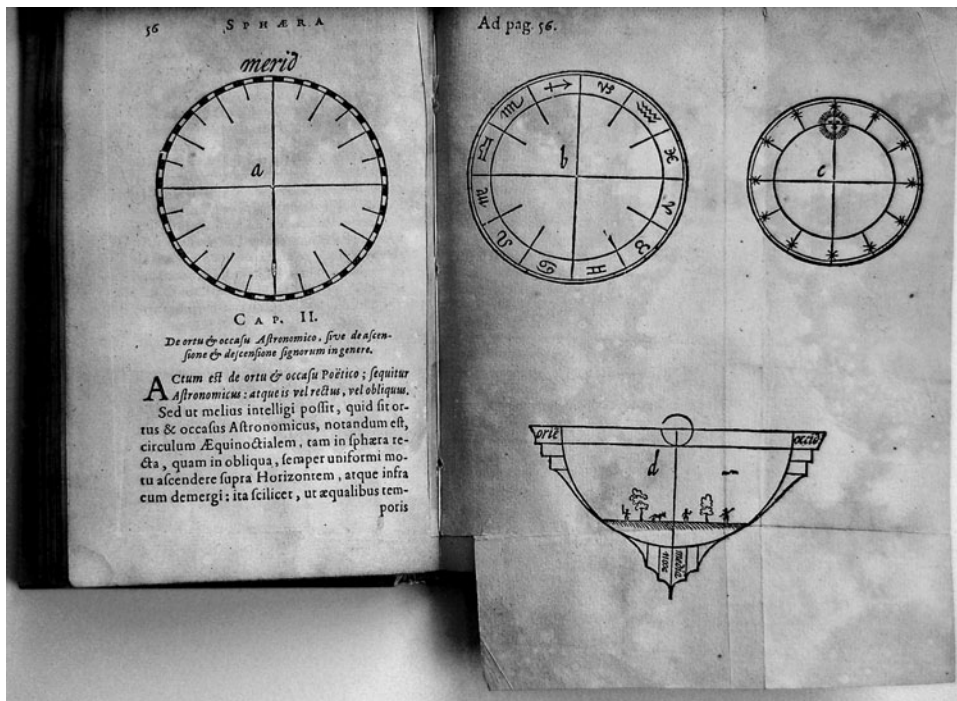 56 SPHÆRA
merid
a
CAP. II.
De ortu & occasu Astronomico, sive de ascen-
sione & descensione signorum in genere.
ACtum est de ortu & occasu Poëtico; sequitur
Astronomicus: atque is vel rectus, vel obliquus.
Sed ut melius intelligi possit, quid sit or-
tus & occasus Astronomicus, notandum est,
circulum Æquinoctialem, tam in sphæra re-
cta, quam in obliqua, semper uniformi mo-
tu ascendere supra Horizontem, atque infra
eum demergi: ita scilicet, ut æqualibus tem-
poris
Ad pag. 56.
♐ ♑ ♒ ♓ ♈ ♉ ♊ ♋ ♌ ♍ ♎ ♏
b
c
oriẽ
occid
d
nox
media